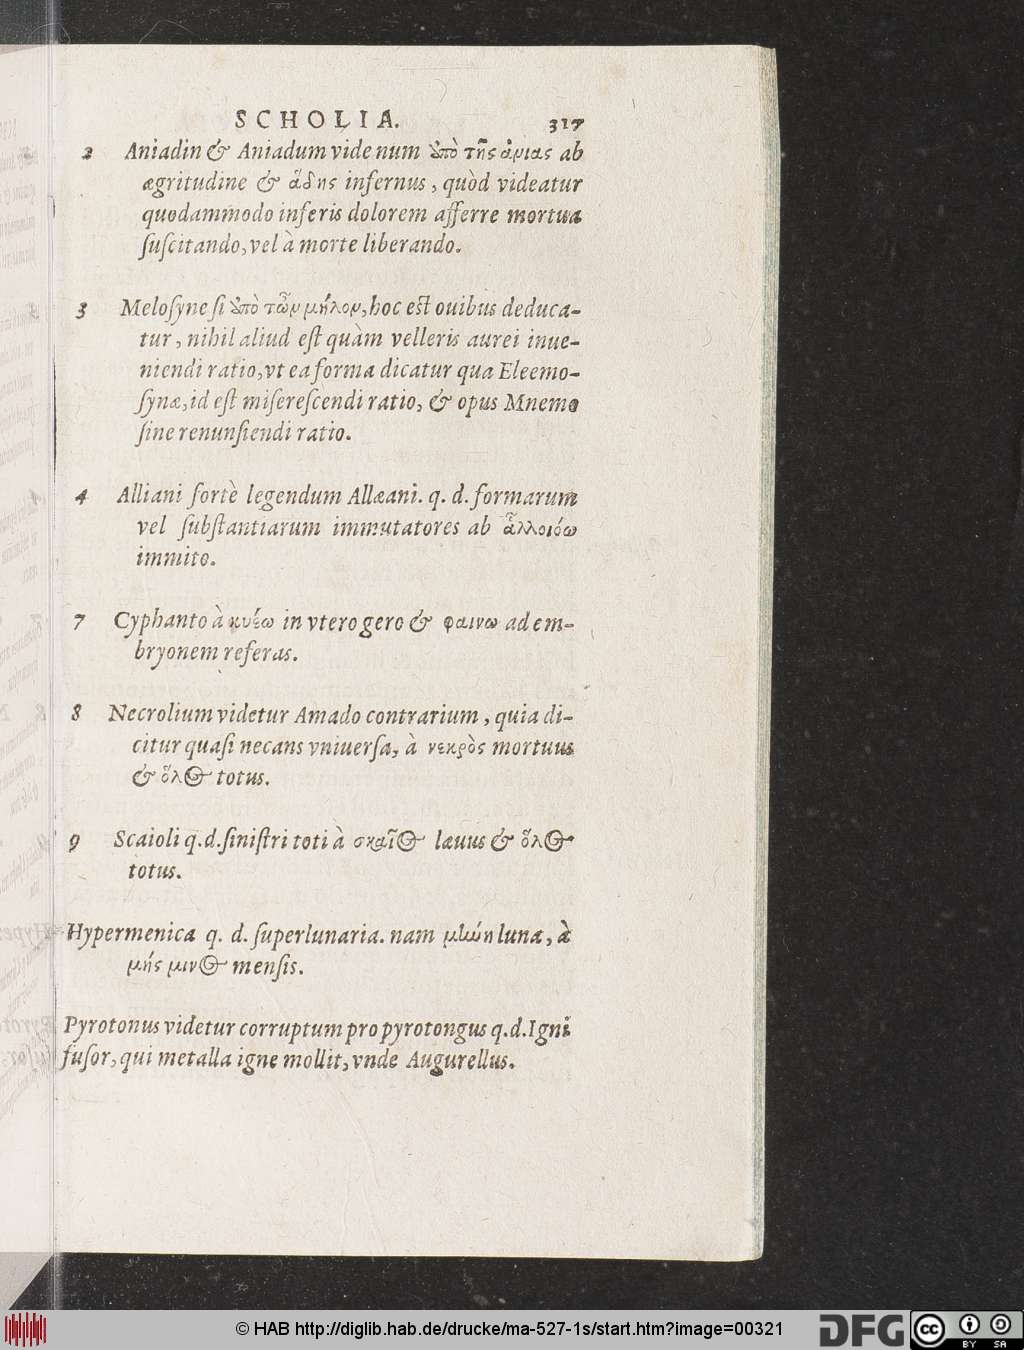 SCHOLIA. 317
2 Aniadin & Aniadum vide num ἀπὸ τῆς ἀνιας ab
ægritudine & ἅδης infernus, quòd videatur
quodammodo inferis dolorem afferre mortua
ſuſcitando, vel à morte liberando.
3 Meloſyne ſi ἀπὸ τῶν μήλον, hoc eſt ouibus deduca-
tur, nihil aliud eſt quàm velleris aurei inue-
niendi ratio, vt ea forma dicatur qua Eleemo-
ſynæ, id eſt miſereſcendi ratio, & opus Mnemo
ſine renunſiendi ratio.
4 Alliani fortè legendum Allæani. q. d. formarum
vel ſubſtantiarum immutatores ab ἀλλοιόω
immito.
7 Cyphanto à κυέω in vtero gero & φαινω ad em-
bryonem referas.
8 Necrolium videtur Amado contrarium, quia di-
citur quaſi necans vniuerſa, à νεκρὸς mortuus
& ὅλος totus.
9 Scaioli q.d. ſiniſtri toti à σκαῖος læuus & ὅλος
totus.
Hypermenica q. d. ſuperlunaria. nam μήνη luna, à
μής μινος menſis.
Pyrotonus videtur corruptum pro pyrotongus q.d. Igni
fuſor, qui metalla igne mollit, vnde Augurellus.
© HAB http://diglib.hab.de/drucke/ma-527-1s/start.htm?image=00321
DFG cc BY SA